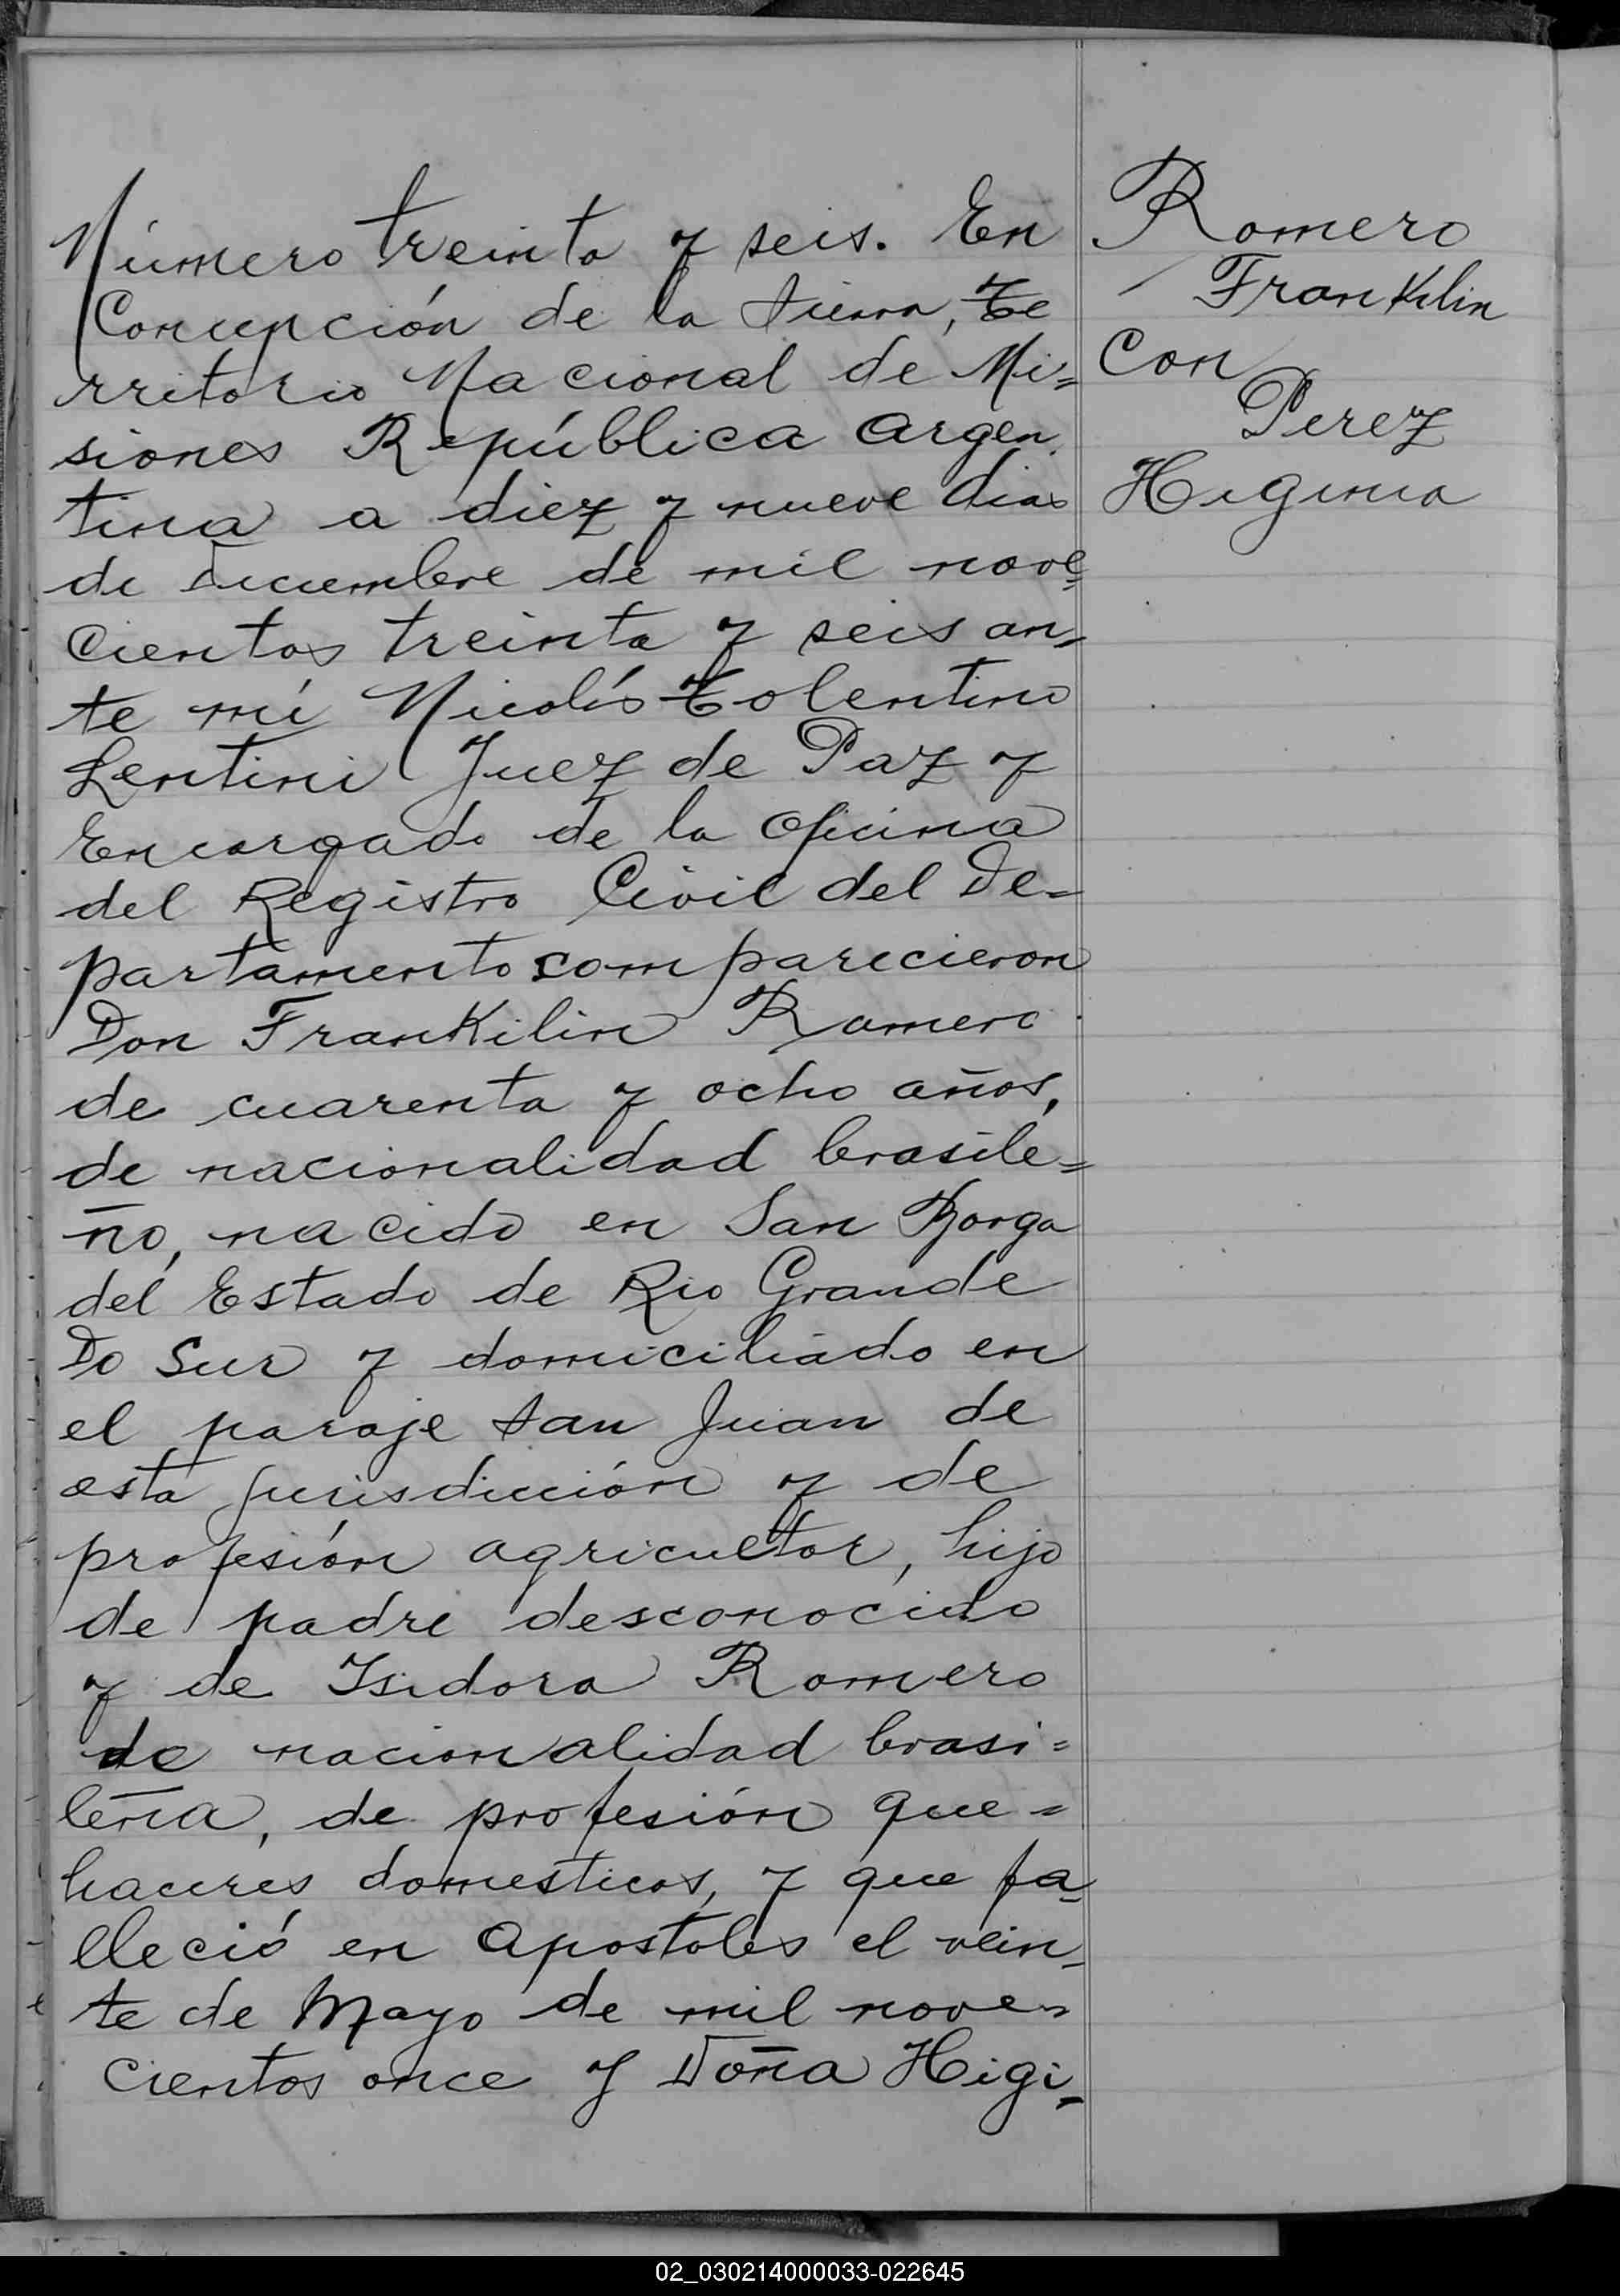 Número treinta y seis. En
Concepción de la Sierra, Te
rritorio Nacional de Mi=
siones República Argen
tina a diez y nueve dias
de Diciembre de mil nove=
cientos treinta y seis an=
te mi Nicolás Tolentino
Lentini Juez de Paz y
Encargado de la Oficina
del Registro Civil del De=
partamento comparecieron
Don Frankilin Romero
de cuarenta y ocho años,
de nacionalidad brasile=
ño, nacido en San Borga
del Estado de Rio Grande
Do Sur y domiciliado en
el paraje San Juan de
esta jurisdicción y de
profesión agricultor, hijo
de padre desconocido
y de Isidora Romero
de nacionalidad brasi=
leña, de profesión que=
haceres domesticos, y que fa=
lleció en Apostoles el vein=
te de Mayo de mil nove=
cientos once y Doña Higi=
Romero
Frankilin
Con
Perez
Higinia
02_030214000033-022645